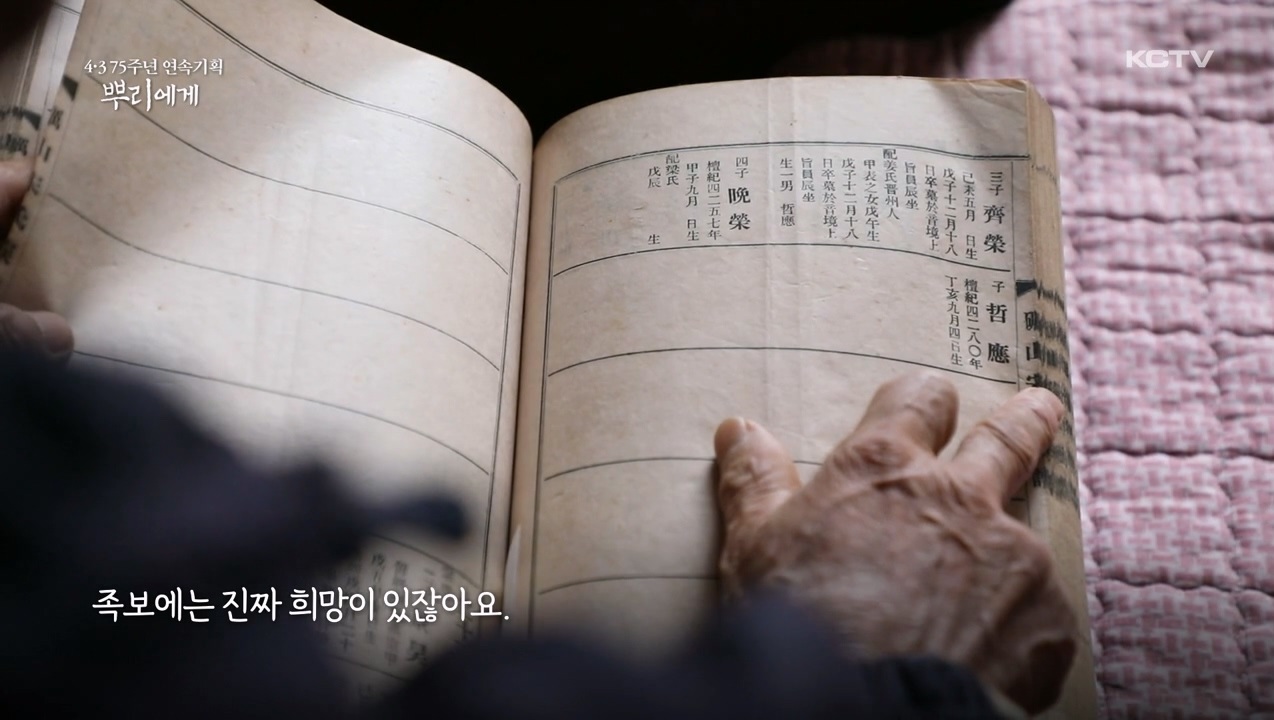 4·3 75주년 연속기획
뿌리에게
KCTV
三子 齊榮
己未五月 日生
戊子十二月十八
日卒墓於音境上
旨員辰坐
配姜氏晋州人
甲表之女戊午生
戊子十二月十八
日卒墓於音境上
旨員辰坐
生一男 哲應
四子 晩榮
檀紀四二五七年
甲子九月 日生
配梁氏
戊辰 生
子 哲應
檀紀四二八〇年
丁亥九月四日生
山
族보에는 진짜 희망이 있잖아요.